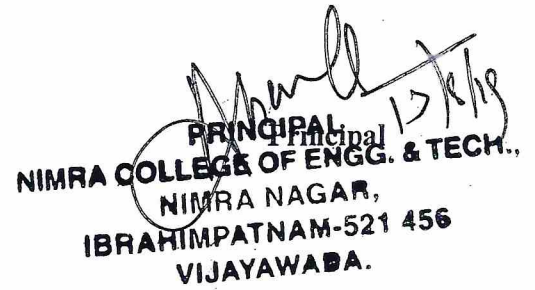 PRINCIPAL
Principal
NIMRA COLLEGE OF ENGG. & TECH.,
NIMRA NAGAR,
IBRAHIMPATNAM-521 456
VIJAYAWADA.